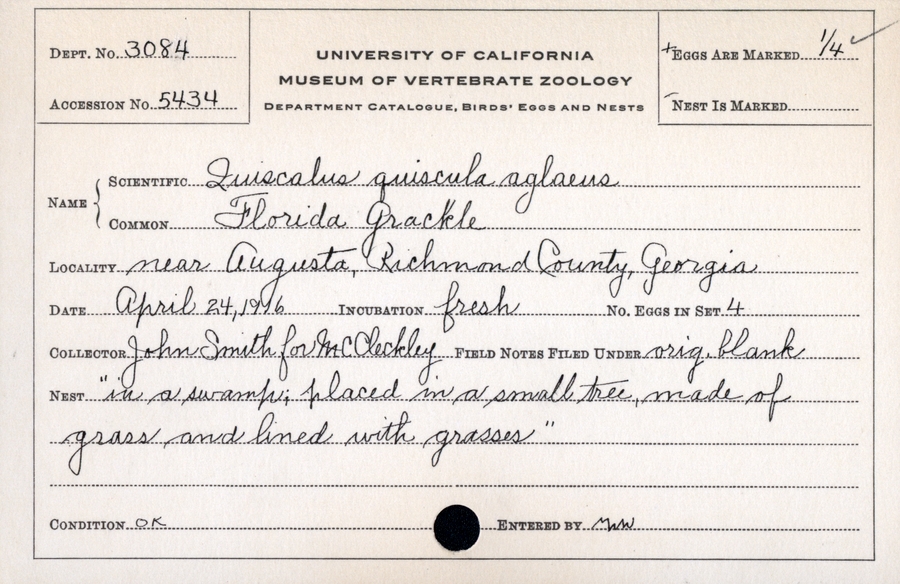 DEPT. No. 3084
UNIVERSITY OF CALIFORNIA
MUSEUM OF VERTEBRATE ZOOLOGY
DEPARTMENT CATALOGUE, BIRDS' EGGS AND NESTS
+EGGS ARE MARKED 1/4 ✓
ACCESSION No. 5434
NEST IS MARKED
NAME
SCIENTIFIC Quiscalus quiscula aglaeus
COMMON Florida Grackle
LOCALITY near Augusta, Richmond County, Georgia
DATE April 24, 1916 INCUBATION fresh No. EGGS IN SET 4
COLLECTOR John Smith for McCleckley FIELD NOTES FILED UNDER orig. blank
NEST "in a swamp; placed in a small tree, made of
grass and lined with grasses"
CONDITION OK ENTERED BY